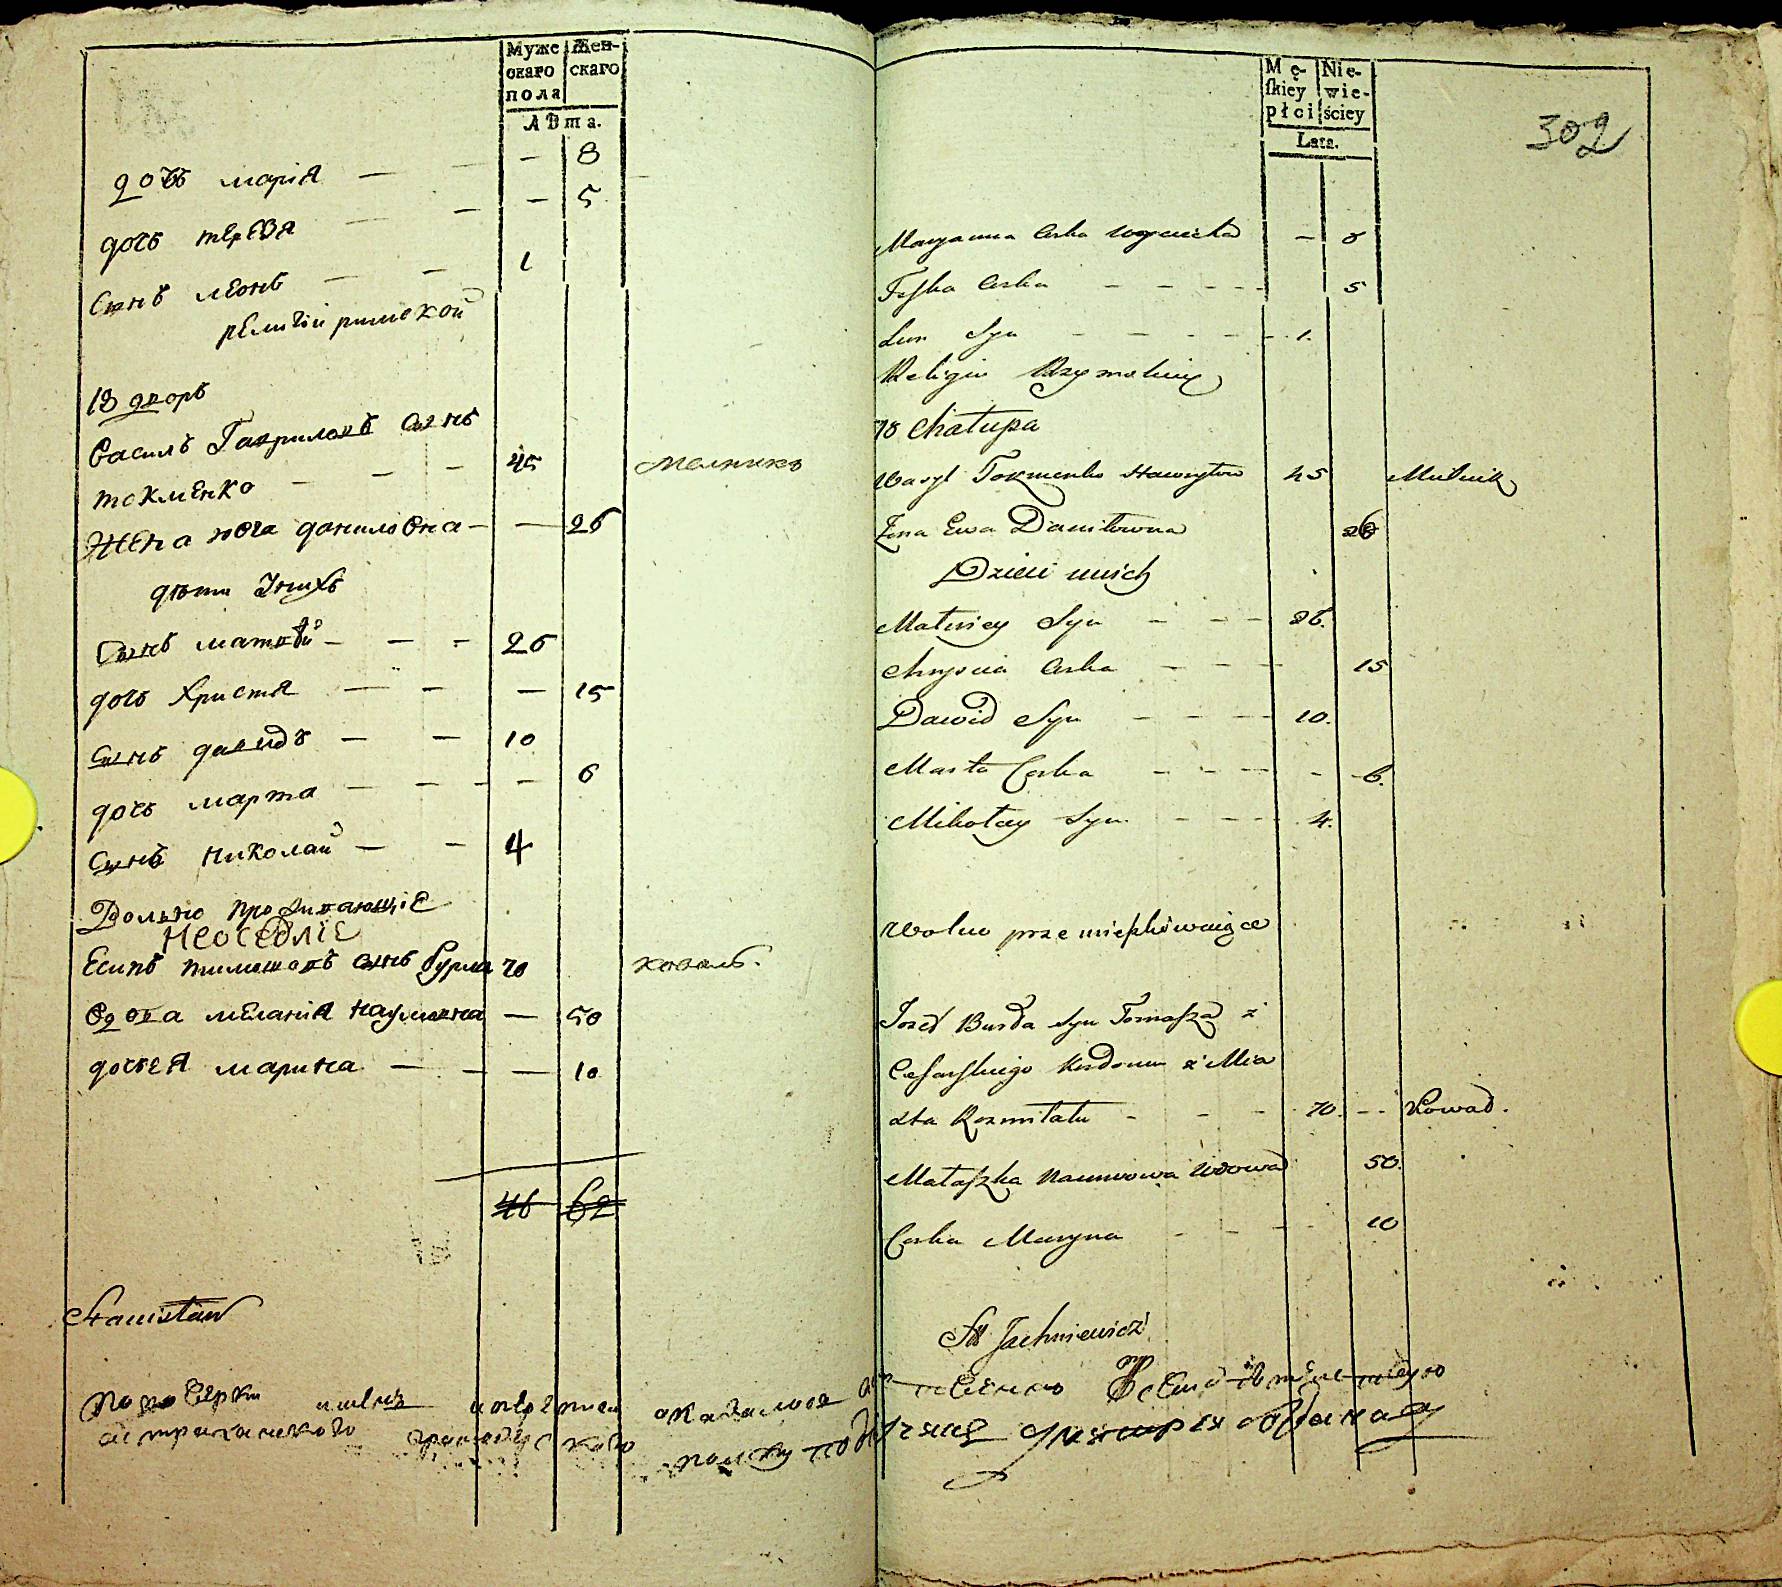 Муже Жен-
скаго скаго
пола
лѣта.
дочь марія — — 8
дочь терезя — — 5
Сынъ леонъ — — 1
религіи римской
18 дворъ
Василь Гавриловъ сынъ
токменко — — 45 мелникъ
Жена юга даниловна — — 26
дѣти Уныхъ
Сынъ матвѣй — — — 26
дочь Христя — — — 15
сынъ давидъ — — 10
дочь марта — — — — 6
сынъ николай — — 4
Вольно проживающіе
неоседліе
Есипъ тимошовъ сынъ бурда 70 коваль.
вдова меланія наумовна — 50
дочъ ея марина — — — 10
46 62
Stanisław
Mę- Nie-
skiey wie-
płci ściey
Lata.
302
Maryanna Corka — 8
Teska Corka — — — — 5
Leon Syn — — — — 1.
Religii Rzymskiey
18 Chałupa
Wasyl Tokmenko Hawryłow 45 Mielnik
Żona Ewa Daniłowna 26
Dzieci unich
Matwiey Syn — — — 26.
Chrysia Corka — — — 15
Dawid Syn — — — 10.
Marta Corka — — — — 6.
Mikołay Syn — — — 4.
Wolno przemieszkiwaiące
Jozef Burda Syn Tomasza z
Cesarskiego Kordonu z Mia
sta — — — 70. — — Kowal.
Małaszka Naumowa Wdowa 50.
Corka Maryna — — — 10
St Jachniewicz